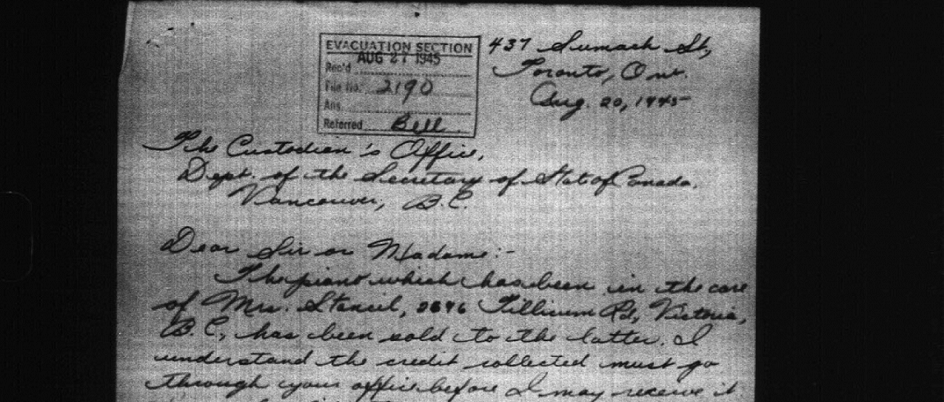 EVACUATION SECTION
AUG 27 1945
Rec'd
File No. 2190
Ans.
Referred Bell
437 Sumach St,
Toronto, Ont.
Aug. 20, 1945
The Custodian's Office,
Dept. of the Secretary of Stat of Canada.
Vancouver, B.C.
Dear Sir or Madame:-
The piano which has been in the care
of Mrs. Stancil, Tillicum Rd, Victoria,
B.C., has been sold to the latter. I
understand the credit collected must go
through your office before I may receive it